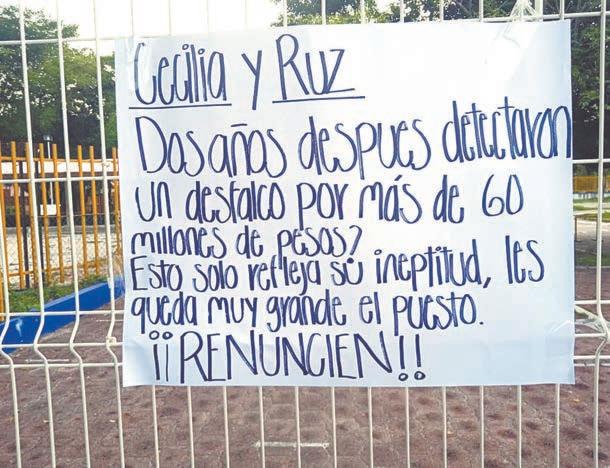 Cecilia y Ruz
Dos años despues detectaron
un desfalco por más de 60
millones de pesos?
Esto solo refleja su ineptitud, les
queda muy grande el puesto.
¡¡RENUNCIEN!!